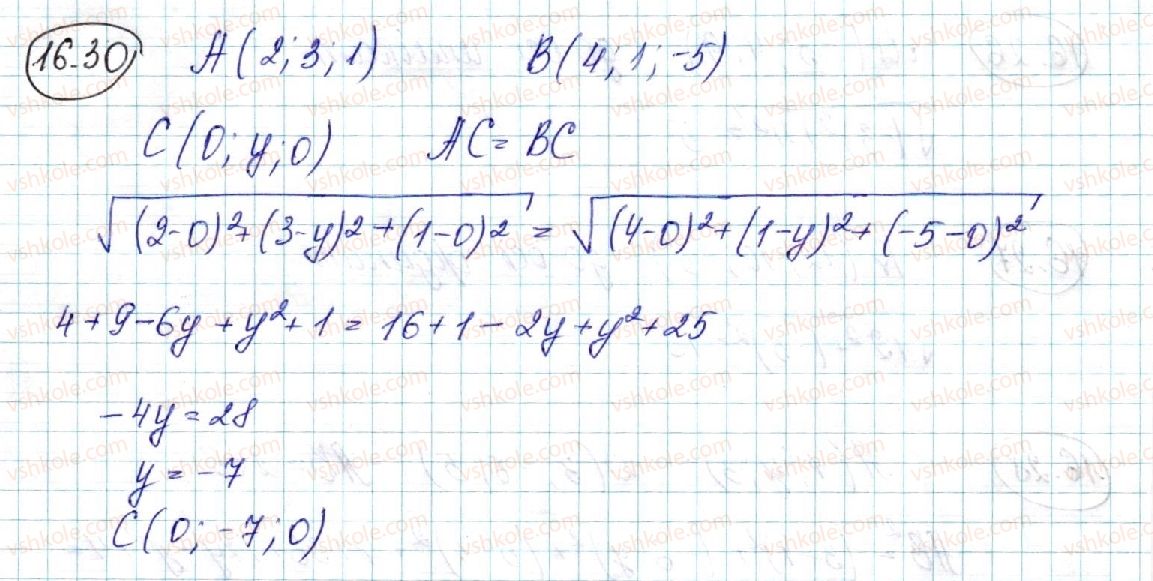 16.30 A(2; 3; 1) B(4; 1; -5)
C(0; y; 0) AC = BC
√((2-0)²+(3-y)²+(1-0)²) = √((4-0)²+(1-y)²+(-5-0)²)
4+9-6y+y²+1=16+1-2y+y²+25
-4y=28
y=-7
C(0; -7; 0)